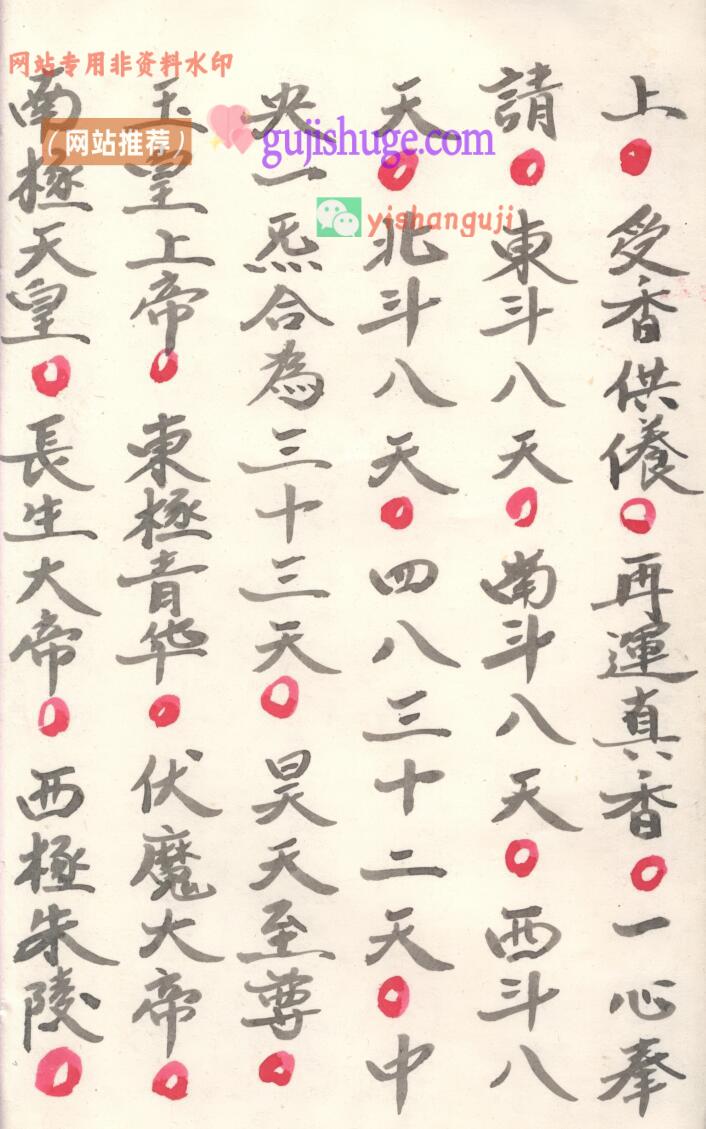 网站专用非资料水印
(网站推荐)
gujishuge.com
yishanguji
上○受香供養○再運真香○一心奉
請○東斗八天○南斗八天○西斗八
天○北斗八天○四八三十二天○中
央一炁合為三十三天○昊天至尊○
玉皇上帝○東極青华○伏魔大帝○
南極天皇○長生大帝○西極朱陵○